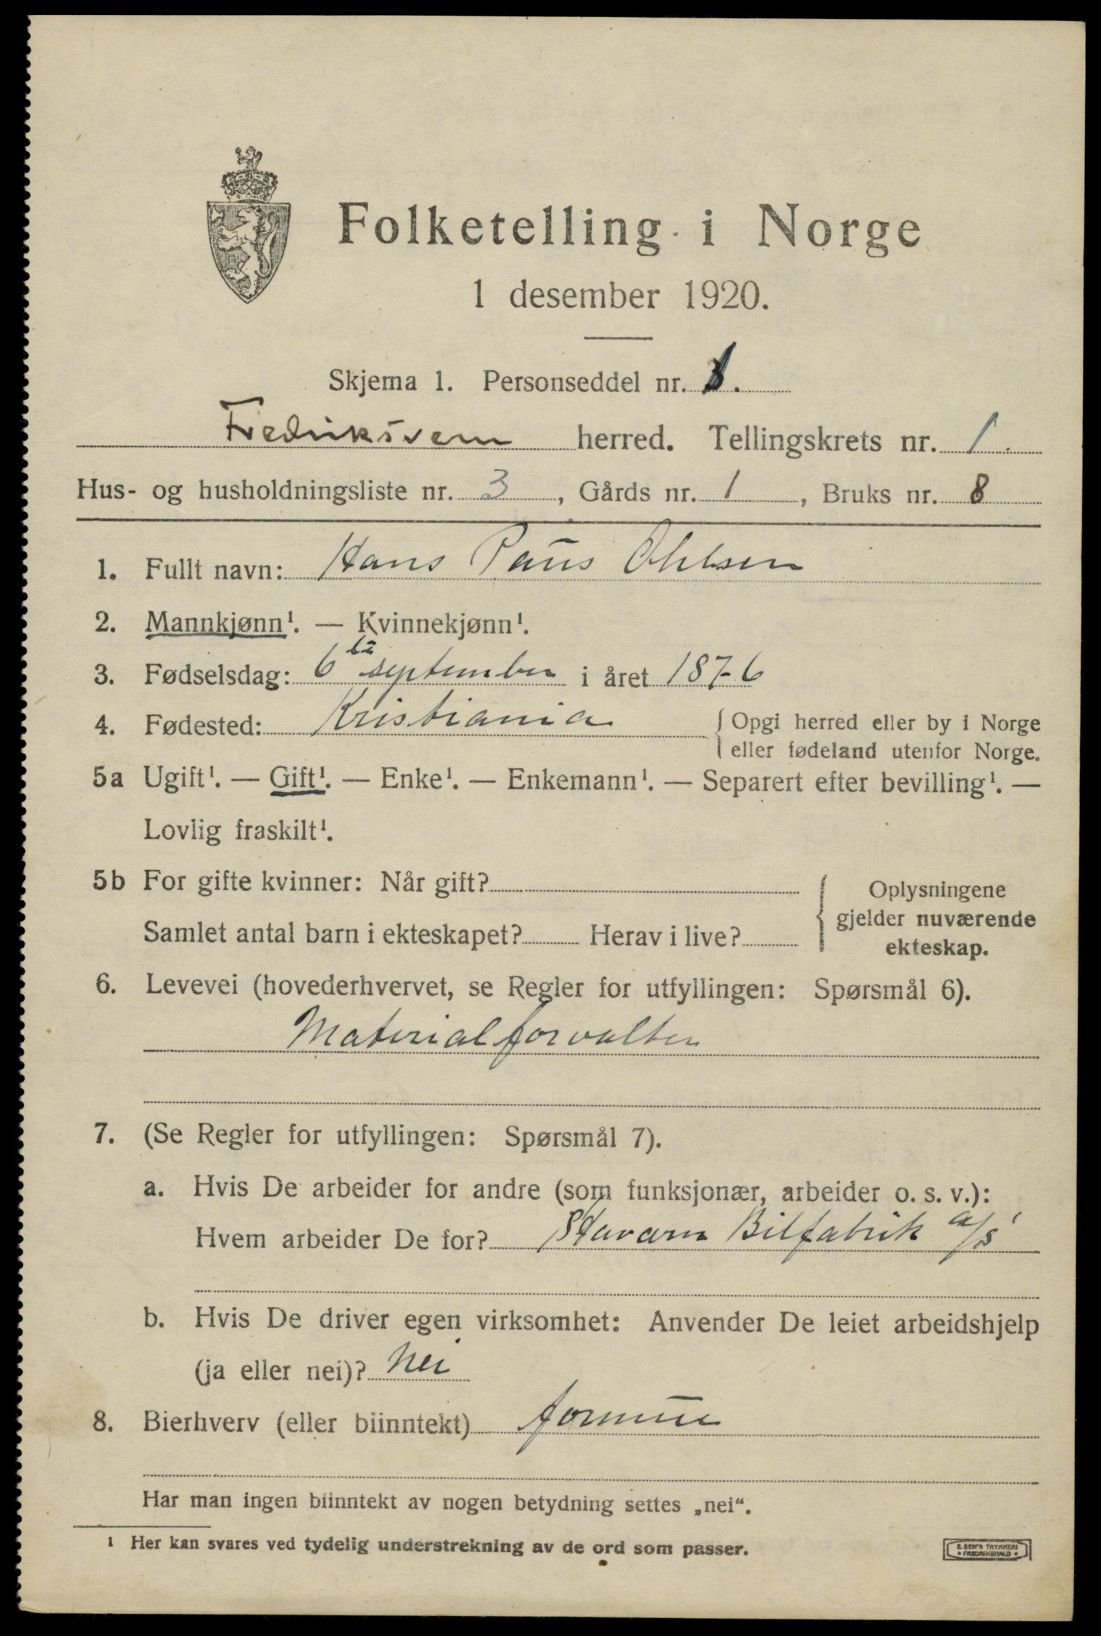 Folketelling i Norge
1 desember 1920.
Skjema 1. Personseddel nr. 1.
Fredriksvern herred. Tellingskrets nr. 1.
Hus- og husholdningsliste nr. 3, Gårds nr. 1, Bruks nr. 8
1. Fullt navn: Hans Paus Ohlsen
2. Mannkjønn¹. — Kvinnekjønn¹.
3. Fødselsdag: 6te september i året 1876
4. Fødested: Kristiania { Opgi herred eller by i Norge
eller fødeland utenfor Norge.
5a Ugift¹. — Gift¹. — Enke¹. — Enkemann¹. — Separert efter bevilling¹. —
Lovlig fraskilt¹.
5b For gifte kvinner: Når gift?
Samlet antal barn i ekteskapet? Herav i live?
Oplysningene
gjelder nuværende
ekteskap.
6. Levevei (hovederhvervet, se Regler for utfyllingen: Spørsmål 6).
Materialforvalter
7. (Se Regler for utfyllingen: Spørsmål 7).
a. Hvis De arbeider for andre (som funksjonær, arbeider o. s. v.):
Hvem arbeider De for? Stavern Bilfabrik a/s
b. Hvis De driver egen virksomhet: Anvender De leiet arbeidshjelp
(ja eller nei)? Nei
8. Bierhverv (eller biinntekt) formue
Har man ingen biinntekt av nogen betydning settes „nei“.
¹ Her kan svares ved tydelig understrekning av de ord som passer.
E. SEM'S TRYKKERI
• FREDRIKSHALD •